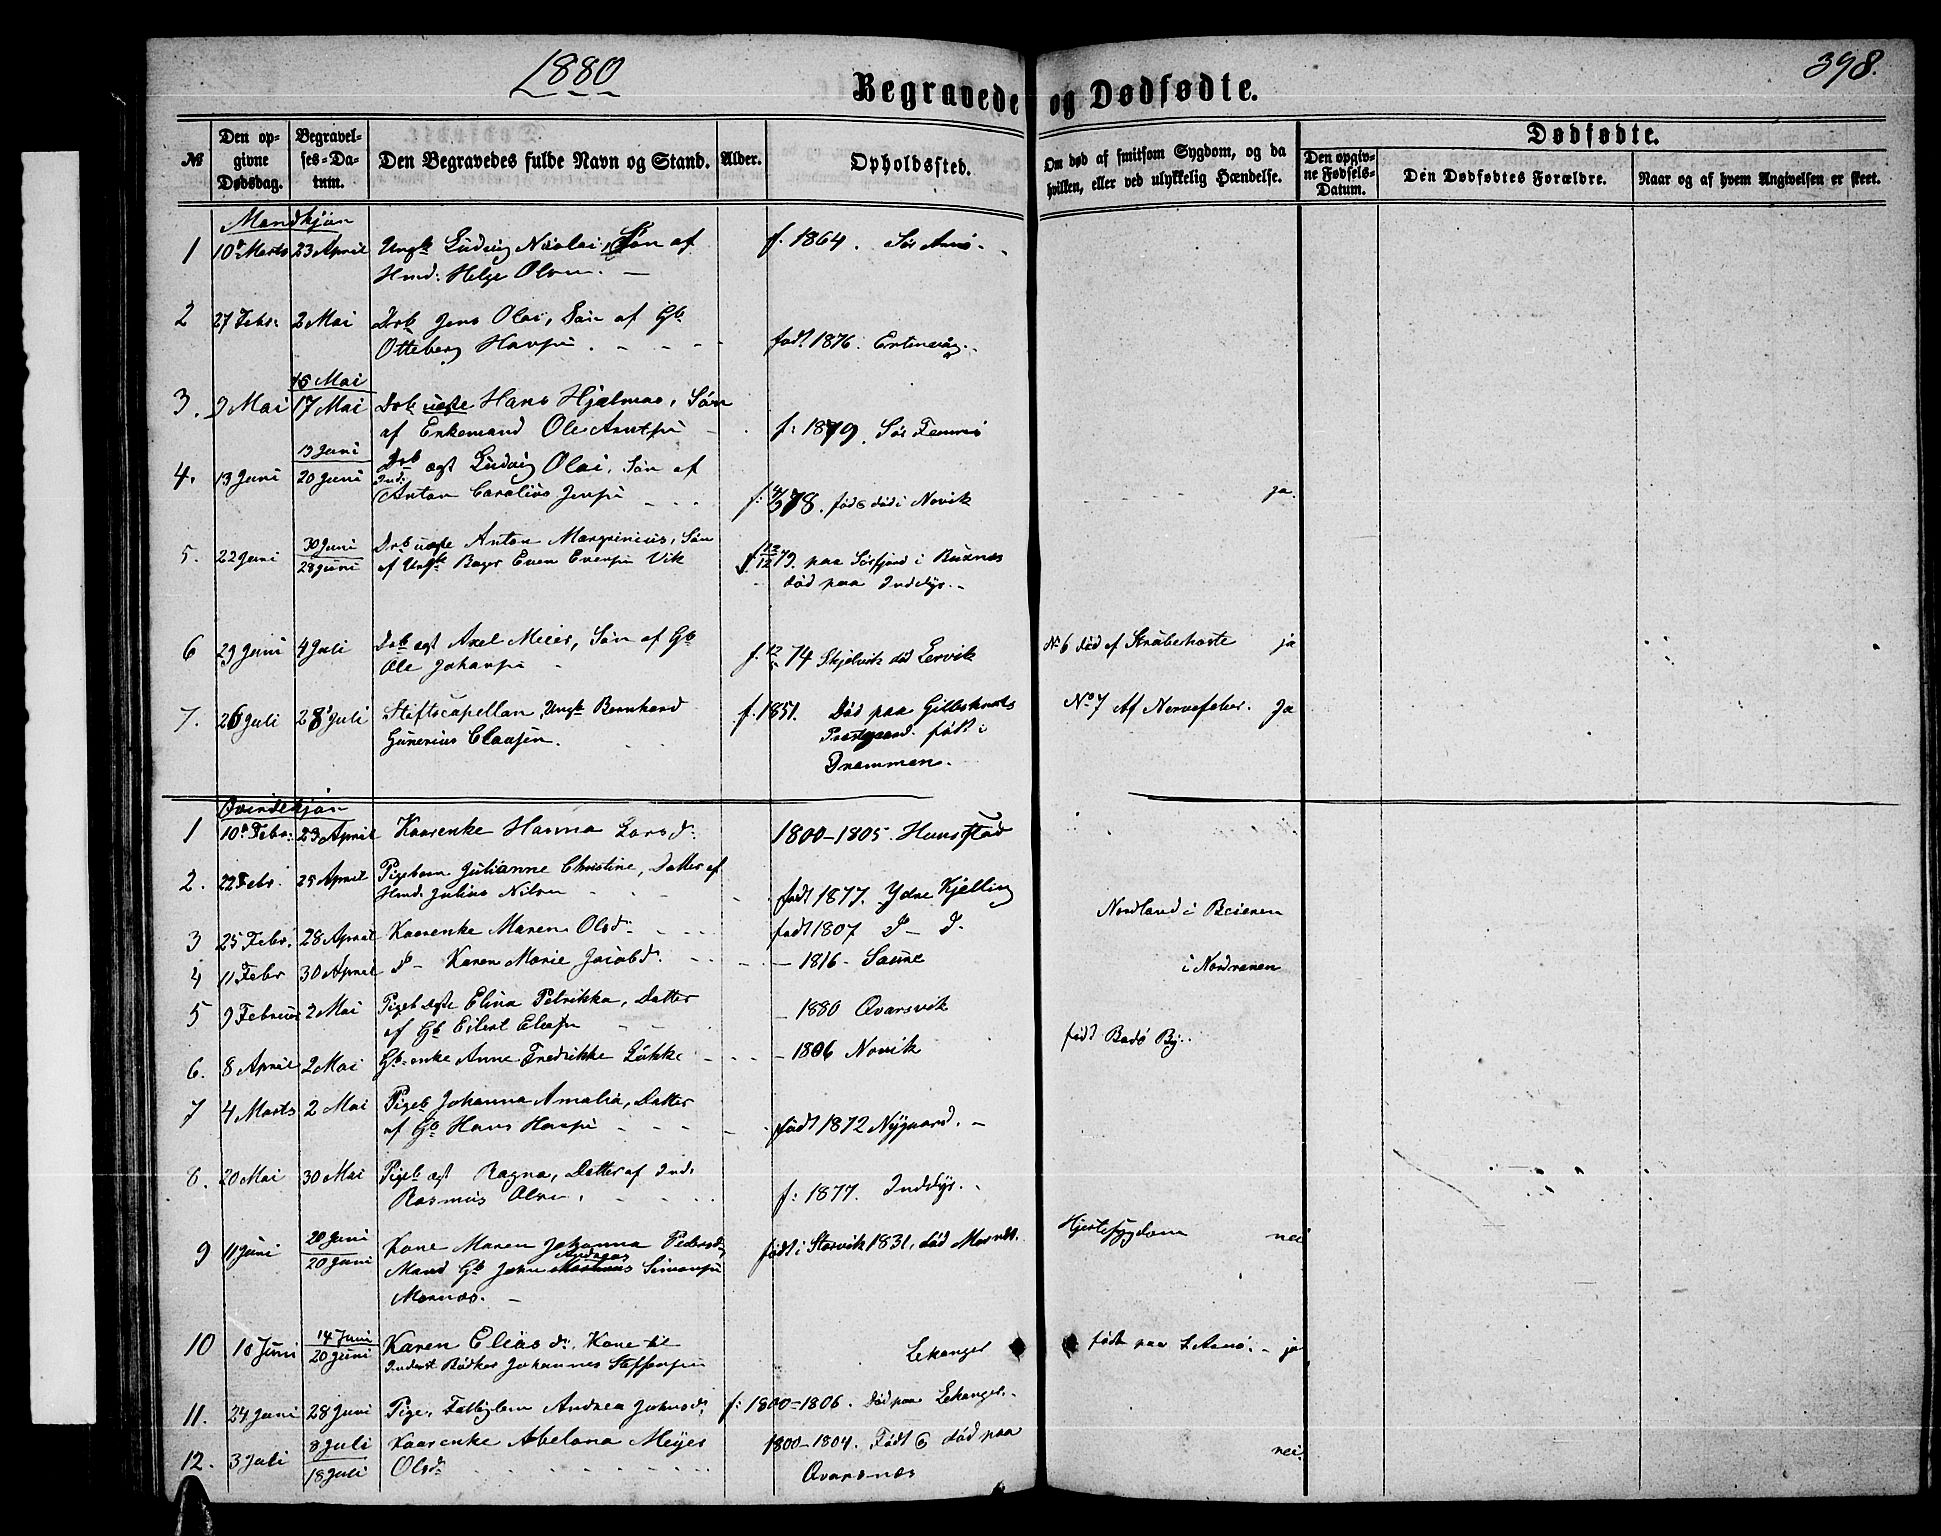 1880
398.
Begravede og Dødfødte.
№
Den opgivne Dødsdag.
Begravelses-Datum.
Den Begravedes fulde Navn og Stand.
Alder.
Opholdssted.
Om død af smitsom Sygdom, og da hvilken, eller ved ulykkelig Hændelse.
Dødfødte.
Den opgivne Fødsels-Datum.
Den Dødfødtes Forældre.
Naar og af hvem Angivelsen er skeet.
Mandkjøn
1 10de Marts 23 April Ungk Ludvig Nicolai, Søn af f. 1864. Sør Arnø.
Hmd: Helge Olsen.
2 27 Febr: 2 Mai Drb Jens Olai, Søn af Gb
Otteberg Hansen. født 1876.
16 Mai
3. 9 Mai 17 Mai Drb uægte Hans Hjalmar, Søn
af Enkemand Ole f: 1879. Sør
13 Juni
4. 13 Juni 20 Juni Drb ægt Ludvig Olai, Søn af
Ind: Anton Carolius Jensen f: 78. født & død i Novik ja.
5. 22 Juni 30 Juni Drb uægte Anton Margrinius, Søn
28 Juni af Ungk Bager Even Evensen Vik f 79. paa Sørfjord i Buxnæs
død paa Inddyr.
6 29 Juni 4 Juli Drb ægt Axel Meier, Søn af Gb
Ole Johansen f. 74 Skjelvik død Lervik No 6 død af Strubehoste ja
7. 26 Juli 28 Juli Stiftscapellan, Ungk Bernhard f. 1851. Død paa Gildeskaals No 7 Af Nervefeber. Ja
Gunerius Claasen. Præstgaard. født i
Drammen.
Qvindekjøn
1 10de Febr: 23 April Kaarenke Hanna Larsd: 1800-1805. Hunstad
2. 22 Febr. 25 April Pigebarn Julianne Christine, Datter af
Hmd. Julius Nilsen født 1877. Ydre Kjelling
3 25 Febr. 28 April Kaarenke Maren Olsd: født 1807 D- D. Nordland i Beieren
4 11 Febr 30 April d- Karen Marie Jacobd. - 1816- i Nordranen
5 9 Februar 2 Mai Pigeb ægte Elina Petrikka, Datter - 1880 Qvarsvik
af Gb Eilert
6. 8 April 2 Mai Gb-enke Anne Fredrikke Lükke - 1806 Novik født Bodø By.
7 4 Marts 2 Mai Pigeb Johanna Amalia, Datter
af Gb Hans Hansen født 1872 Nygaard.
8. 20 Mai 30 Mai Pigeb ægt Ragna, Datter af Ind:
Rasmus Olsen. f: 1877. Inddyr.
9 11 Juni 20 Juni Kone Maren Johanna Pedersd, født i Storvik 1831, død Mornæs. Hjertesygdom nei
20 Juni Mand Gb John Andreas Simonsen
Mornæs.
10 10 Juni 14 Juni Karen Eliasd: Kone til Lekanger født paa S. Arnø. - ja
20 Juni Inderst Bødker Johannes Steffensen
11. 24 Juni 28 Juni Pige, Fattiglem Andrea Johnsd: f: 1800-1806. Død paa Lekanger.
12. 3 Juli 8 Juli Kaarenke Abelona Meyer 1800-1804. Født & død paa nei.
18 Juli Olsd: Qvarsnæs